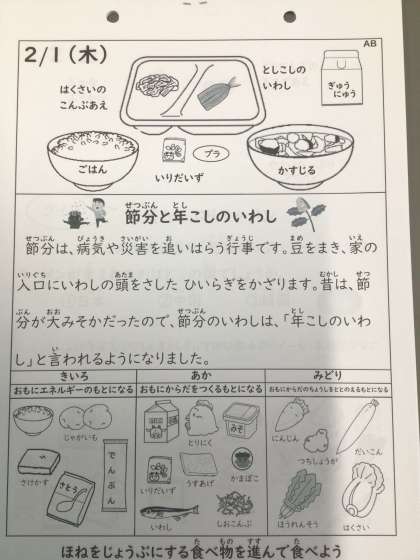 AB
2/1(木)
はくさいの
こんぶあえ
としこしの
いわし
ぎゅう
にゅう
ごはん
いりだいず
プラ
かすじる
節分と年こしのいわし
節分は、病気や災害を追いはらう行事です。豆をまき、家の
入口にいわしの頭をさした ひいらぎをかざります。昔は、節
分が大みそかだったので、節分のいわしは、「年こしのいわ
し」と言われるようになりました。
きいろ
おもにエネルギーのもとになる
じゃがいも
さけかす
さとう
でんぷん
あか
おもにからだをつくるもとになる
とりにく
みそ
いりだいず
うすあげ
かまぼこ
いわし
しおこんぶ
みどり
おもにからだのちょうしをととのえるもとになる
にんじん
つちしょうが
だいこん
ほうれんそう
はくさい
ほねをじょうぶにする食べ物を進んで食べよう